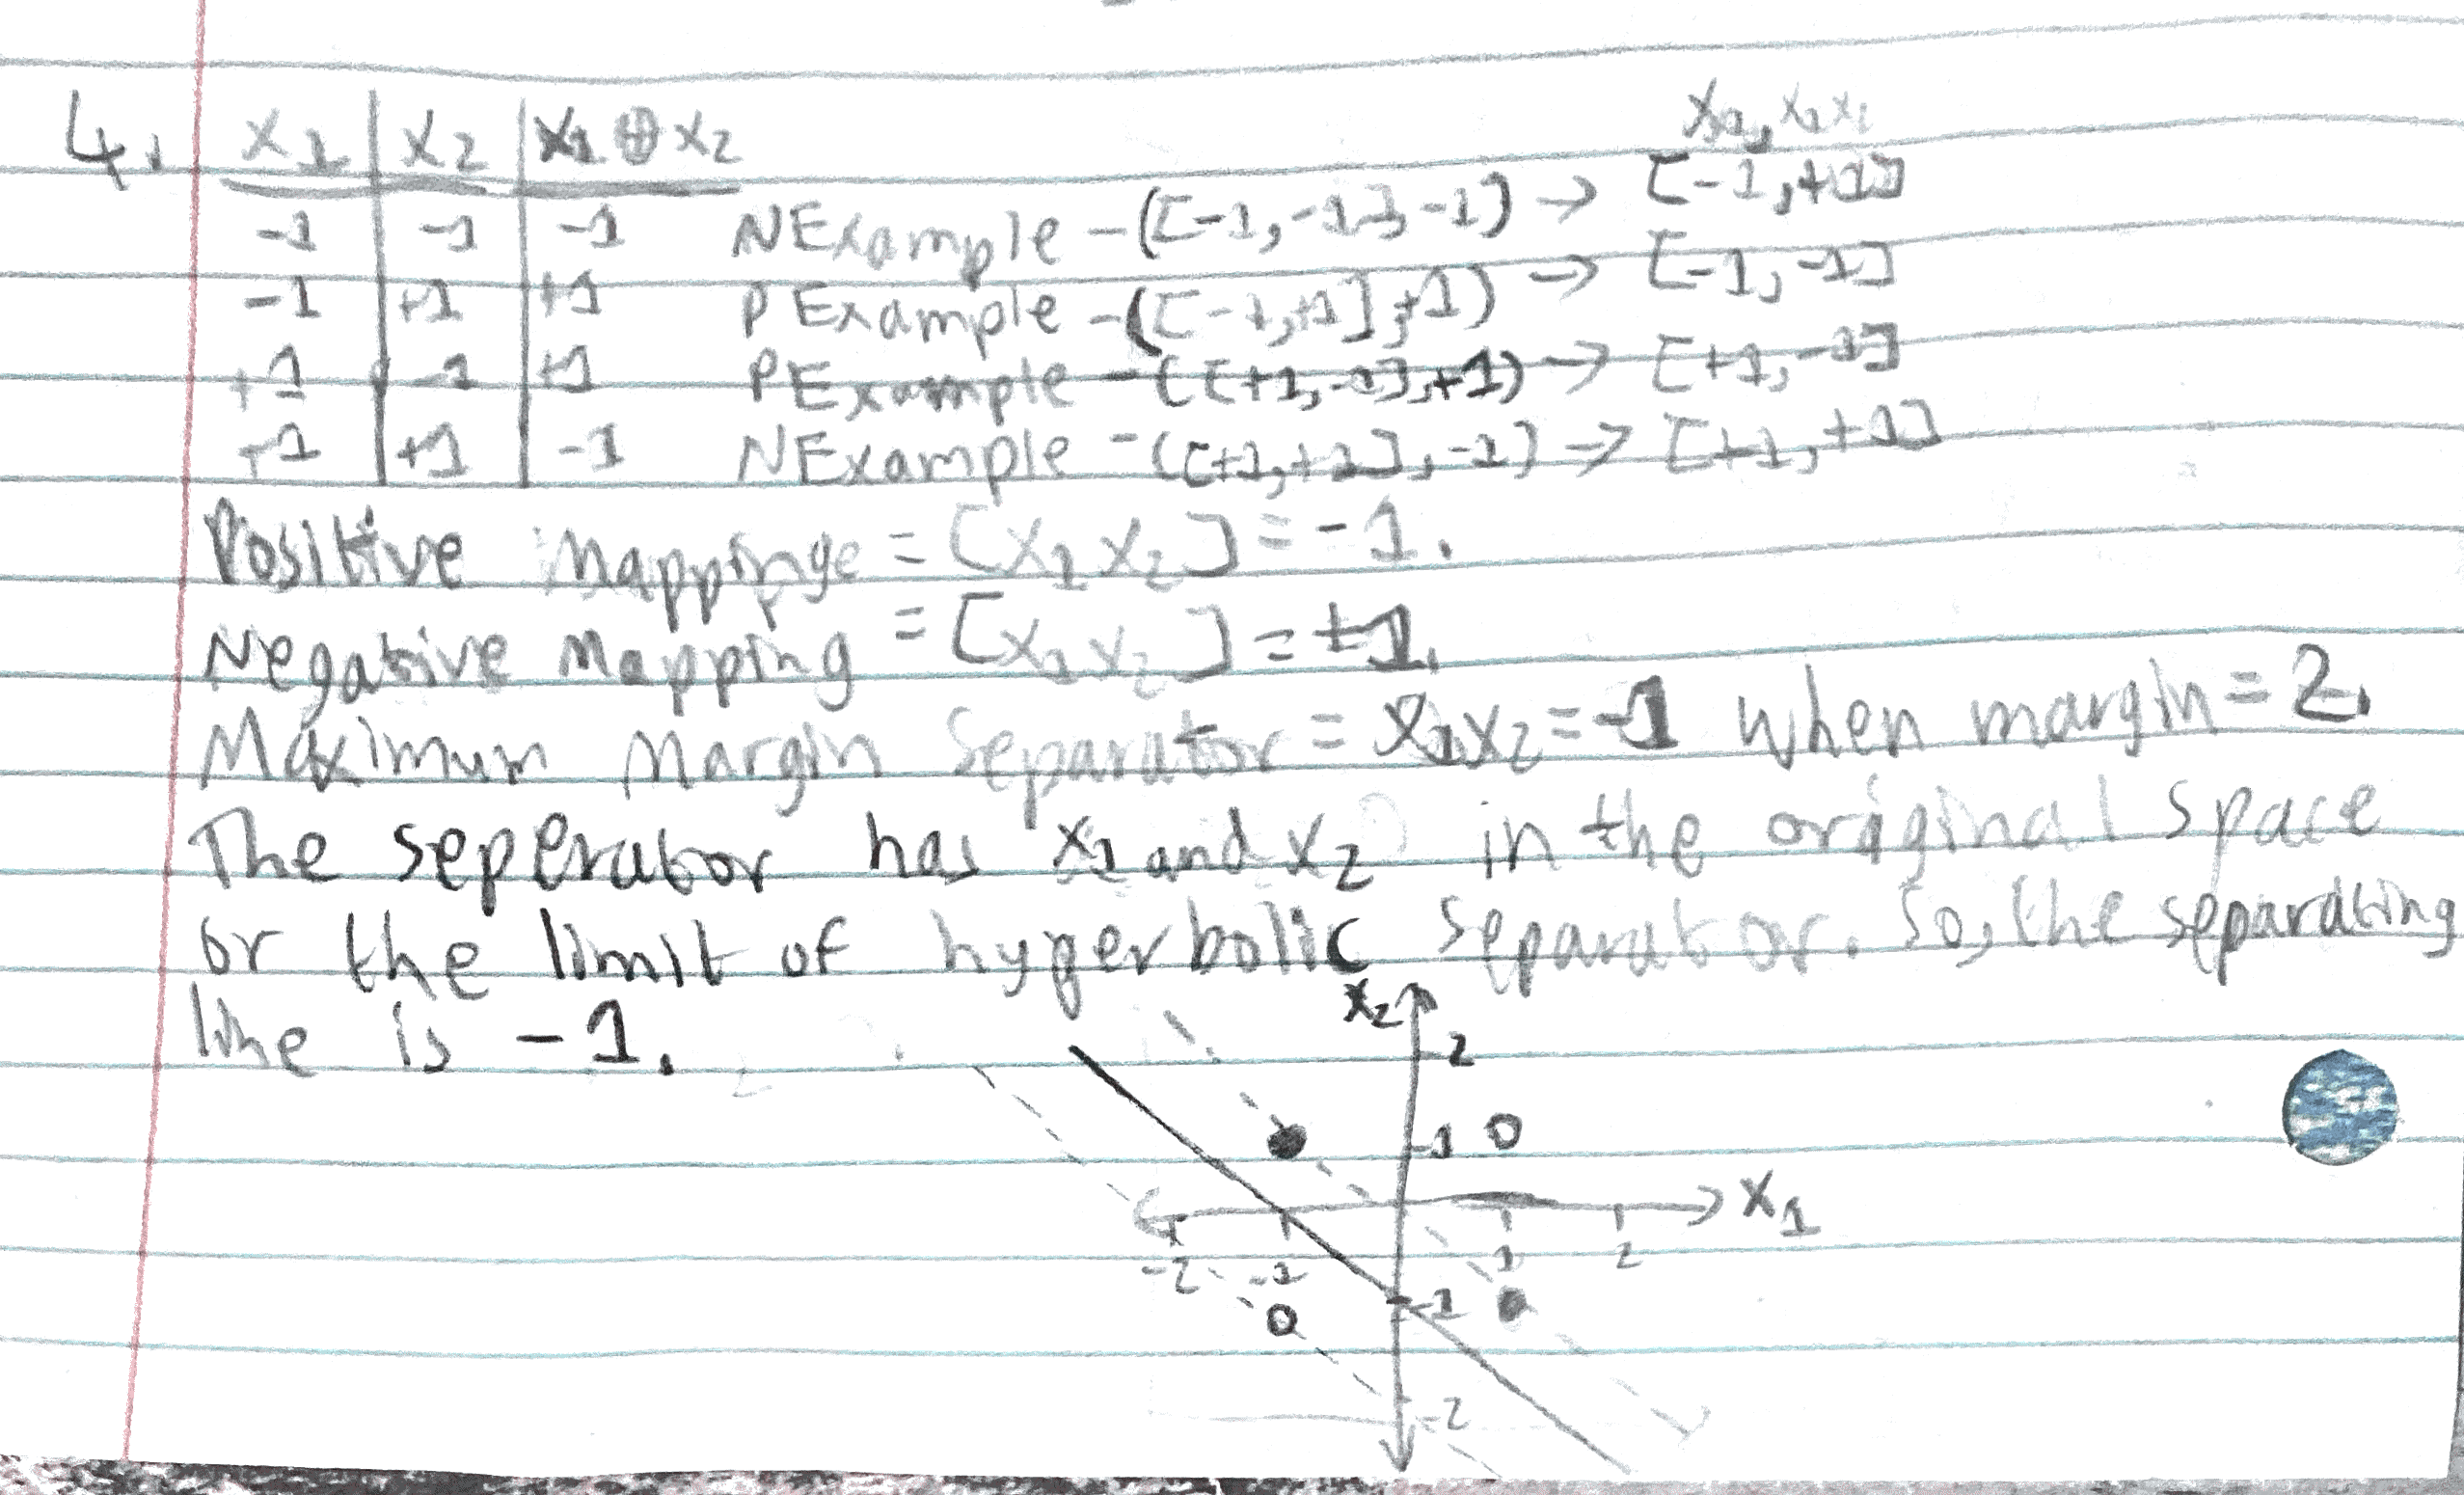 4. x1 | x2 | x1 ⊕ x2 x1, x1x2
-1 -1 -1 NExample - ([-1, -1], -1) → [-1, +1]
-1 +1 +1 PExample - ([-1, +1], +1) → [-1, -1]
+1 -1 +1 PExample - ([+1, -1], +1) → [+1, -1]
+1 +1 -1 NExample - ([+1, +1], -1) → [+1, +1]
Positive Mappinge = [x1 x2] = -1.
Negative Mapping = [x1 x2] = +1.
Maximum Margin Separator = x1x2 = -1 when margin = 2.
The seperator has x1 and x2 in the original space
or the limit of hyperbolic separator. So, the separating
line is -1.
x2
2
1 0
x1
-2 -1 1 2
0 -1
-2